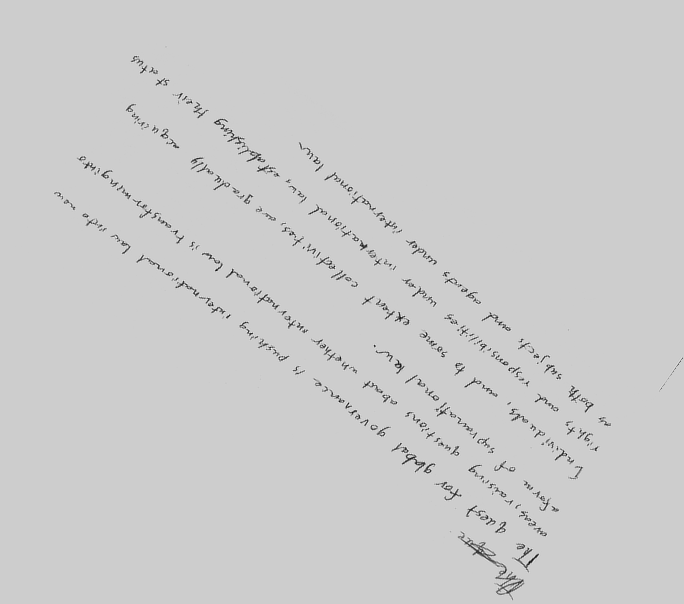 The
The quest for global governance is pushing international law into new
areas, raising questions about whether international law is transforming into
a form of supranational law.
Individuals, and to some extent collectivities, are gradually acquiring
rights and responsibilities under international law, establishing their status
as both subjects and agents under international law